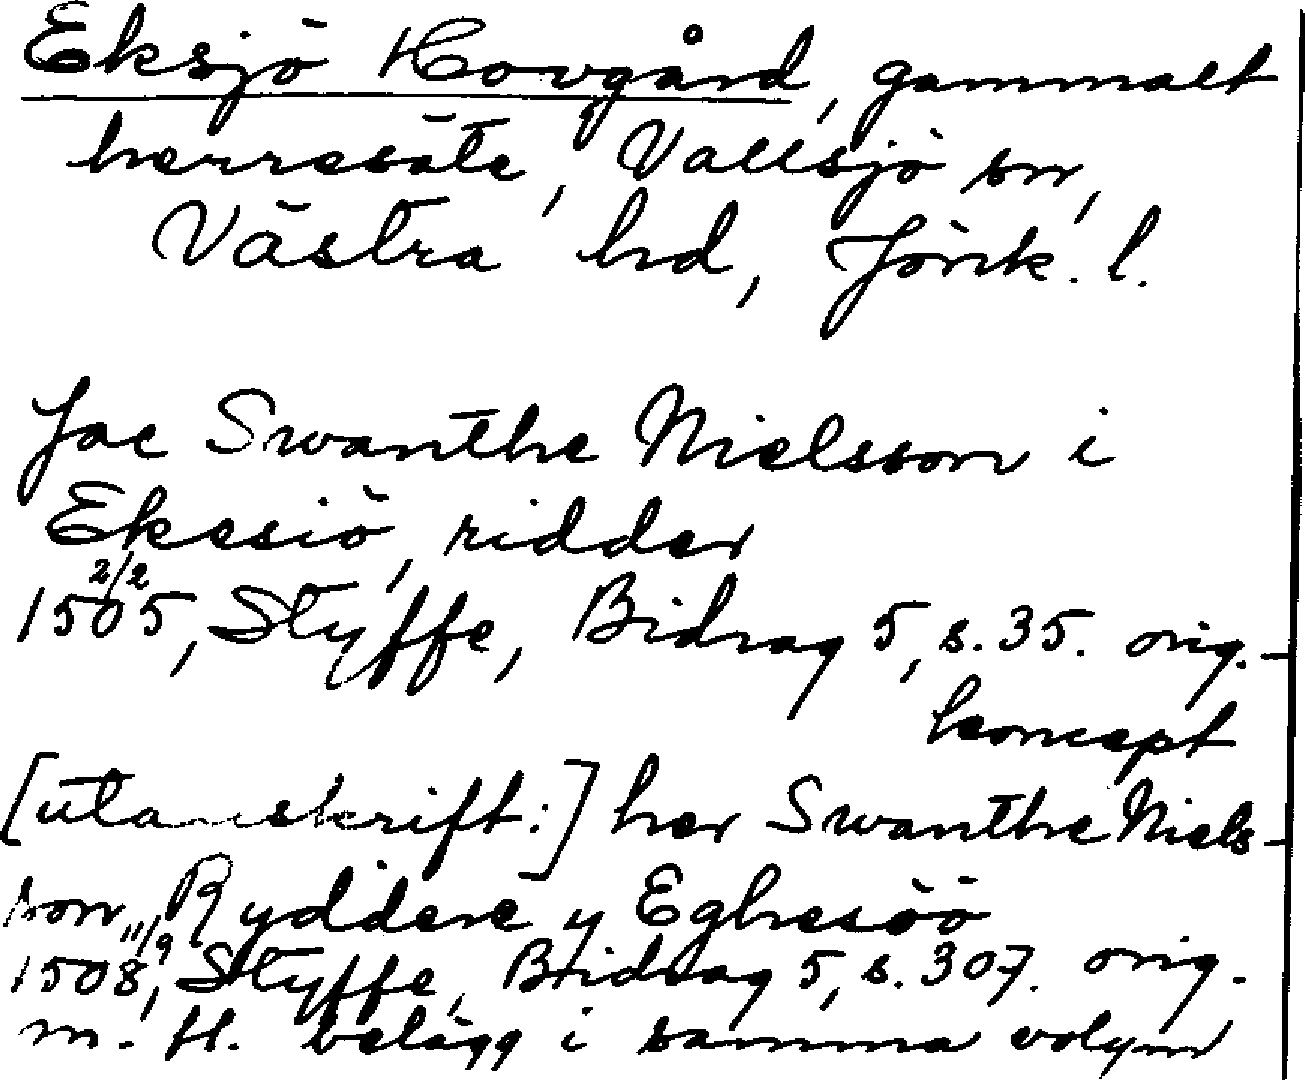 Eksjö Hovgård, gammalt
herresäte, Vallsjö sn,
Västra hd, Jönk. l.
Jac Swanthe Nielsson i
Ekesiö, ridder
2/2
1505, Styffe, Bidrag 5, s. 35. orig.-
koncept
[utanskrift:] her Swanthe Niels-
son, Ryddere y Eghesöö
11/9
1508, Styffe, Bidrag 5, s. 307. orig.
m. fl. belägg i samma volym